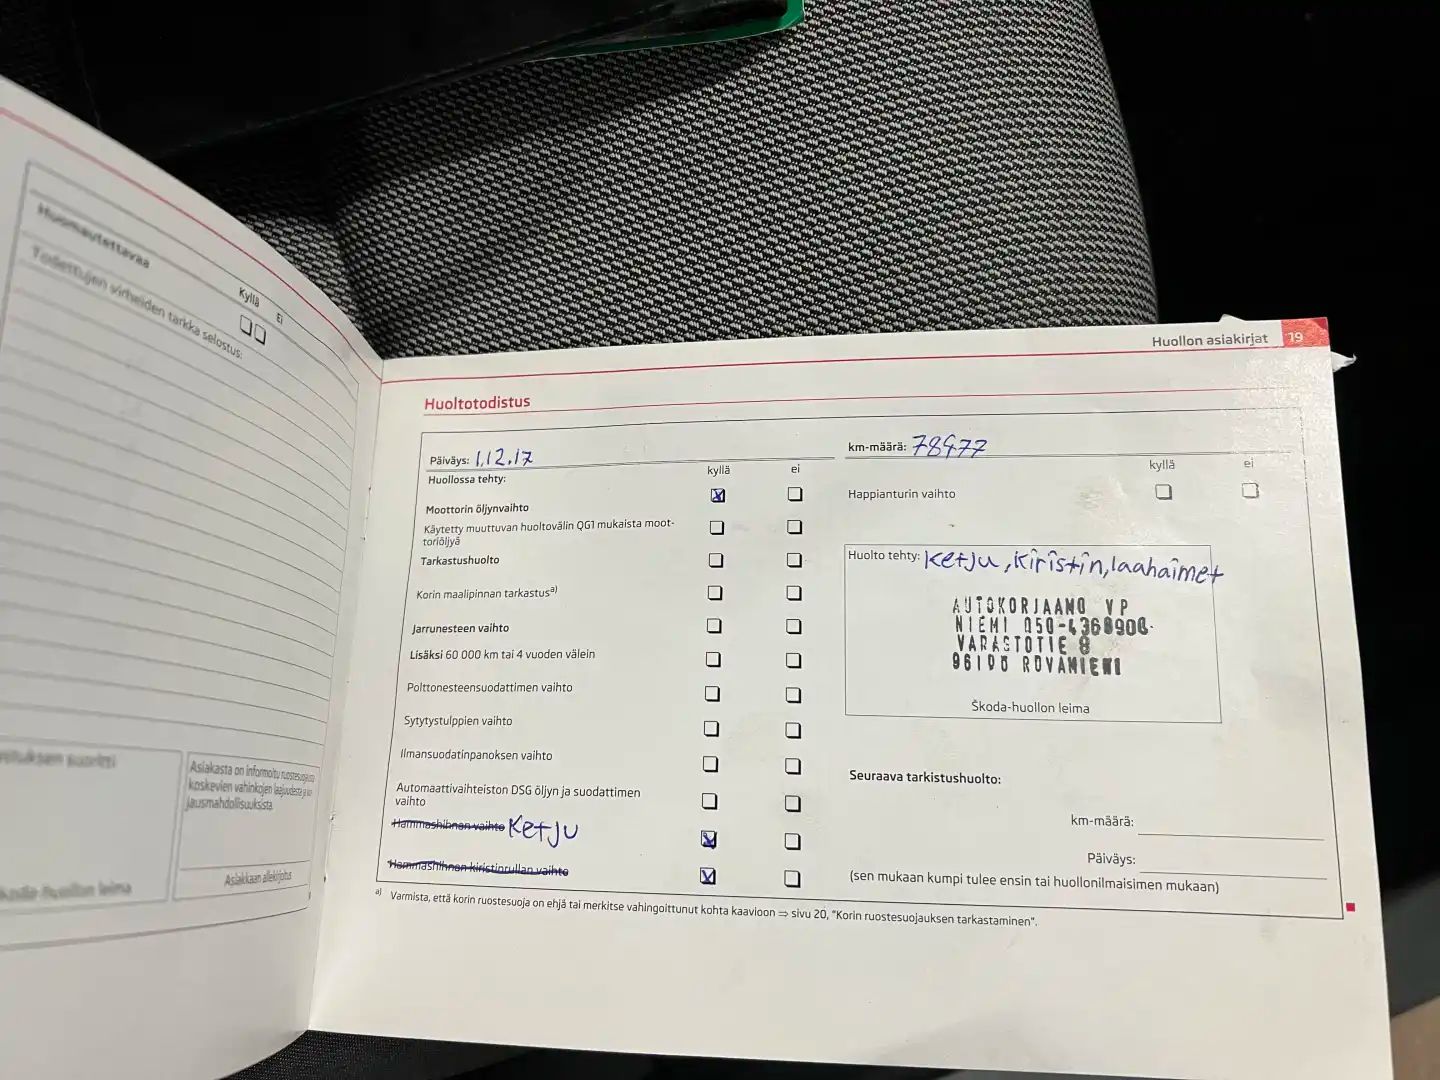 Huomautettavaa
Kyllä Ei
Todettujen virheiden tarkka selostus:
Asiakasta on informoitu ruostesuojausta
koskevien vahinkojen laajuudesta ja
jausmahdollisuuksista.
Asiakkaan allekirjoitus
huollon leima
Huollon asiakirjat 19
Huoltotodistus
Päiväys: 1.12.17
km-määrä: 78477
Huollossa tehty:
kyllä ei
kyllä ei
Moottorin öljynvaihto
Happianturin vaihto
Käytetty muuttuvan huoltovälin QG1 mukaista moot-
toriöljyä
Tarkastushuolto
Korin maalipinnan tarkastus a)
Jarrunesteen vaihto
Lisäksi 60 000 km tai 4 vuoden välein
Polttonesteensuodattimen vaihto
Sytytystulppien vaihto
Ilmansuodatinpanoksen vaihto
Automaattivaihteiston DSG öljyn ja suodattimen
vaihto
Hammashihnan vaihto Ketju
Hammashihnan kiristinrullan vaihto
Huolto tehty: Ketju, Kiristin, laahaimet
AUTOKORJAAMO VP
NIEMI 050-4368900
VARASTOTIE 8
96100 ROVANIEMI
Škoda-huollon leima
Seuraava tarkistushuolto:
km-määrä:
Päiväys:
(sen mukaan kumpi tulee ensin tai huollonilmaisimen mukaan)
a) Varmista, että korin ruostesuoja on ehjä tai merkitse vahingoittunut kohta kaavioon ⇒ sivu 20, "Korin ruostesuojauksen tarkastaminen".